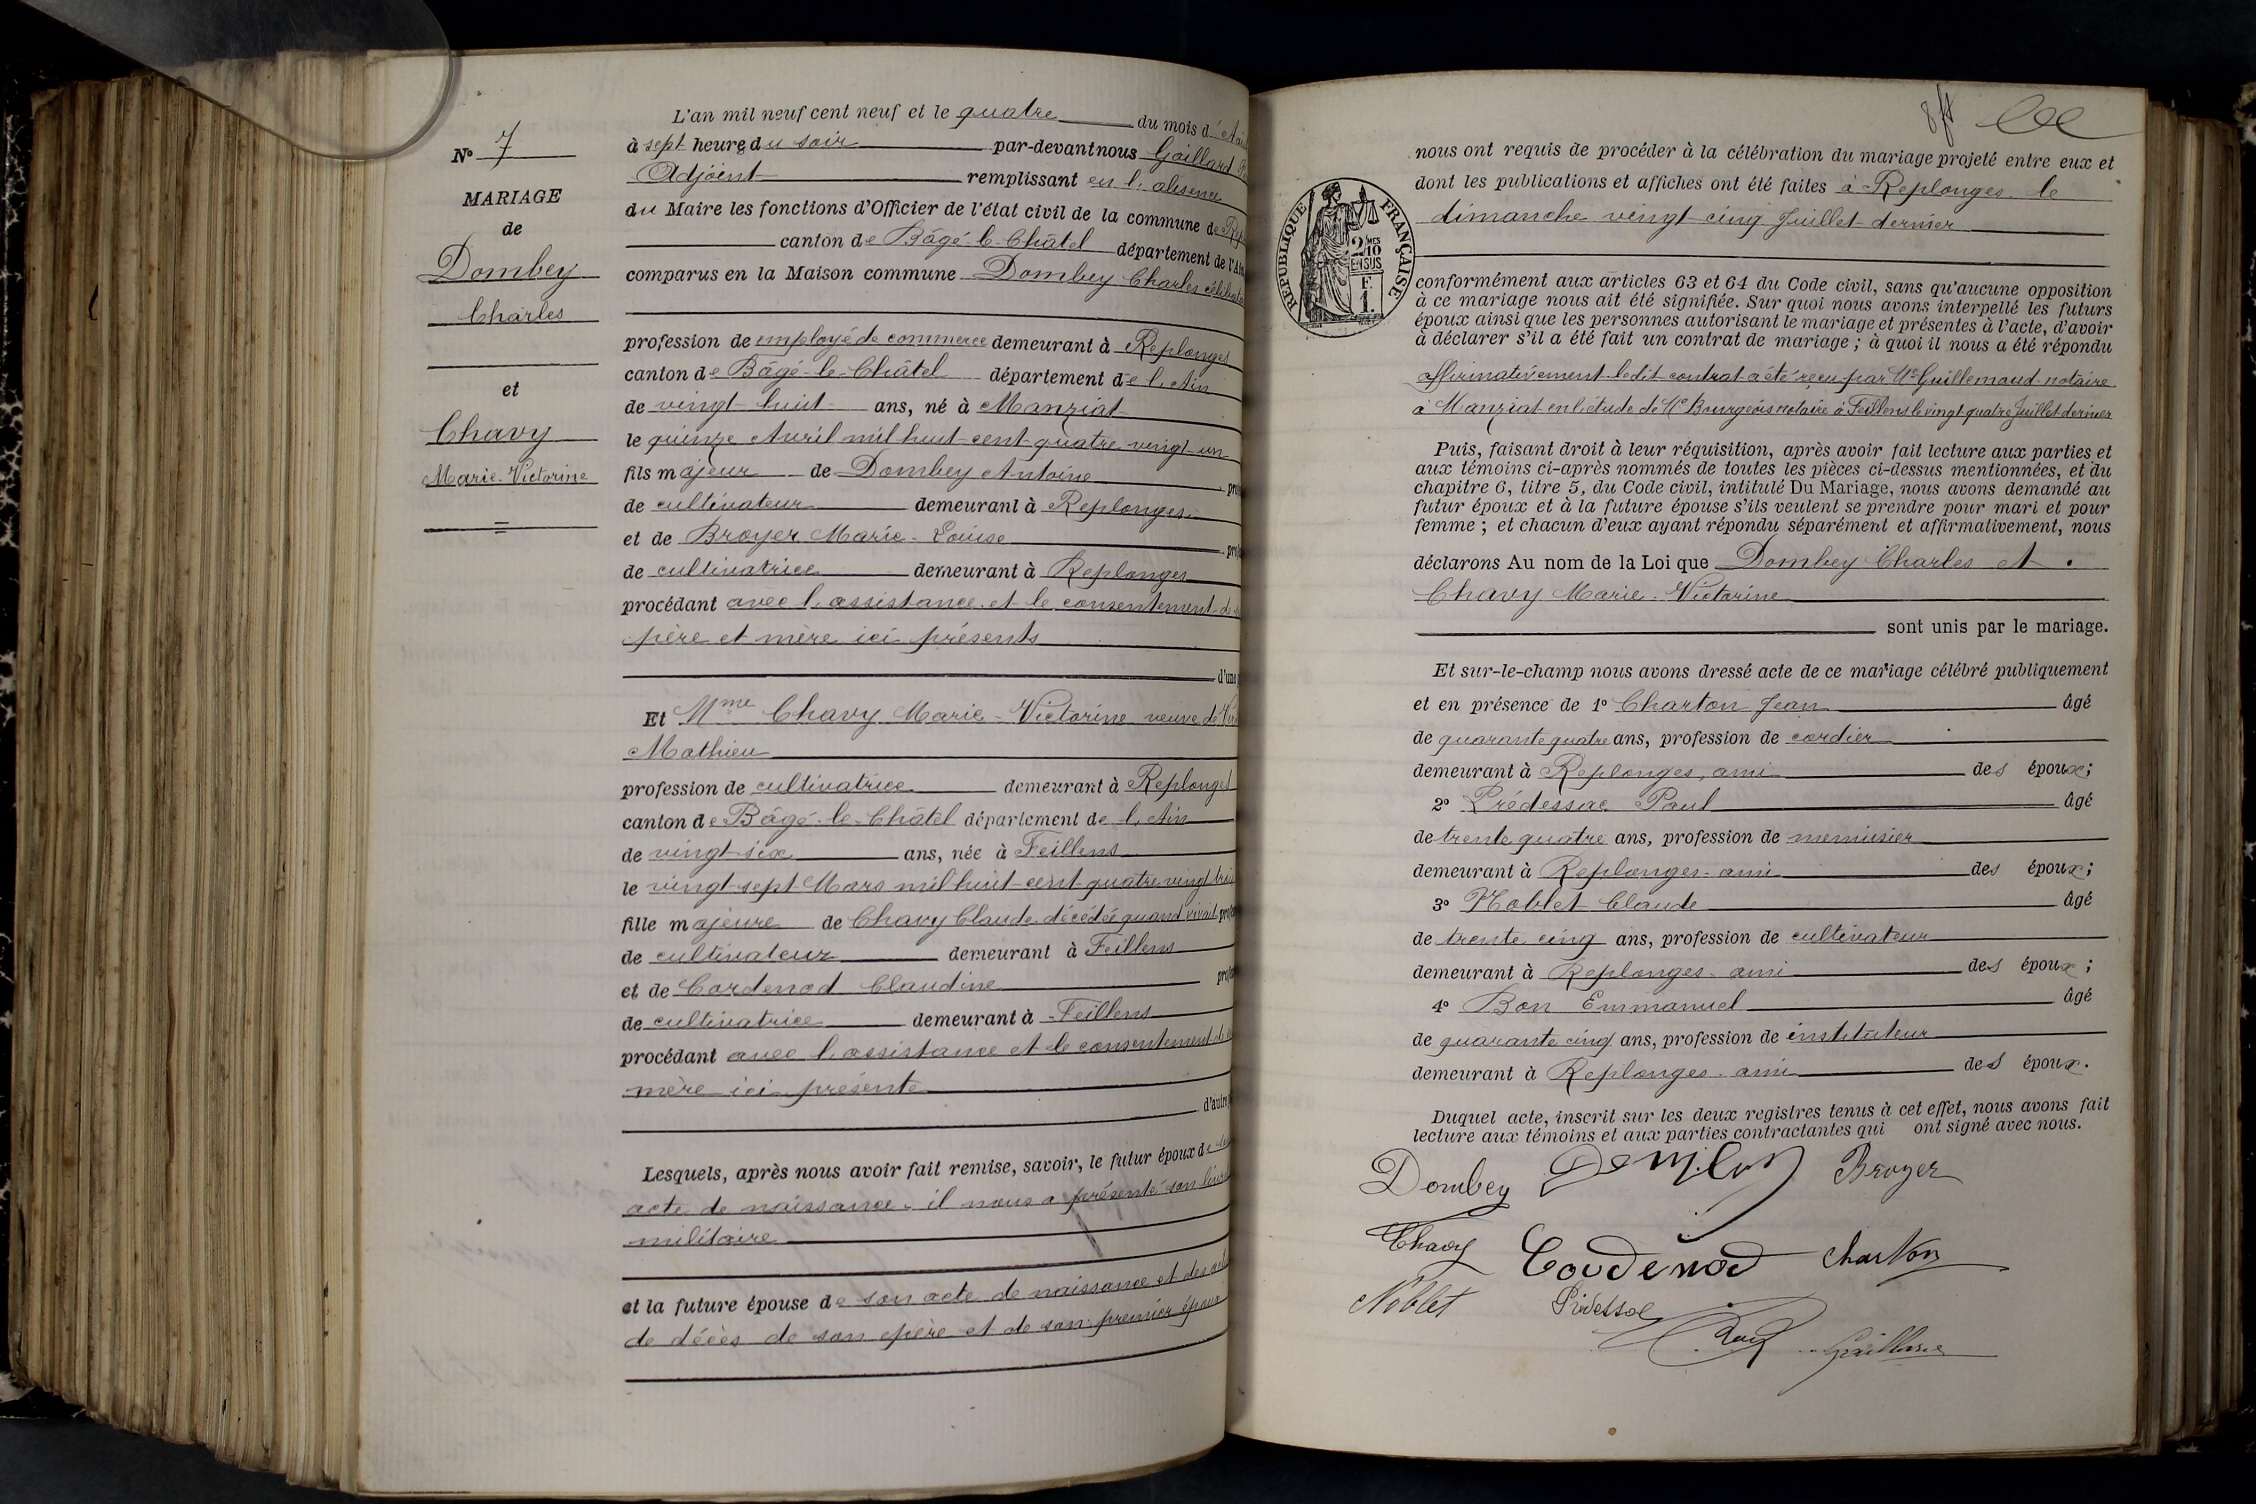 N° 7
MARIAGE
de
Dombey
Charles
et
Chavy
Marie-Victorine
L'an mil neuf cent neuf et le quatre du mois d'
à sept heures du soir par-devant nous Gaillard
Adjoint remplissant en l'absence
du Maire les fonctions d'Officier de l'état civil de la commune de Rep
canton de Bâgé-le-Châtel département de l'A
comparus en la Maison commune Dombey Charles
profession de employé de commerce demeurant à Replonges
canton de Bâgé-le-Châtel département de l'Ain
de vingt-huit ans, né à Manziat
le quinze Avril mil huit-cent-quatre-vingt-un
fils majeur de Dombey Antoine
de cultivateur demeurant à Replonges
et de Broyer Marie-Louise
de cultivatrice demeurant à Replonges
procédant avec l'assistance et le consentement de
père et mère ici présents
d'une
Et Mme Chavy Marie-Victorine veuve de
Mathieu
profession de cultivatrice demeurant à Replonges
canton de Bâgé-le-Châtel département de l'Ain
de vingt-six ans, née à Feillens
le vingt-sept Mars mil huit-cent-quatre-vingt-trois
fille majeure de Chavy Claude décédée quand vivait
de cultivateur demeurant à Feillens
et de Cordenod Claudine
de cultivatrice demeurant à Feillens
procédant avec l'assistance et le consentement de
mère ici présente
d'autre
Lesquels, après nous avoir fait remise, savoir, le futur époux de
acte de naissance. il nous a présenté son livret
militaire
et la future épouse de son acte de naissance et des
de décès de son père et de son premier époux
nous ont requis de procéder à la célébration du mariage projeté entre eux et
dont les publications et affiches ont été faites à Replonges le
dimanche vingt-cinq Juillet dernier
RÉPUBLIQUE FRANÇAISE
2/10
EN SUS
F.
1.
conformément aux articles 63 et 64 du Code civil, sans qu'aucune opposition
à ce mariage nous ait été signifiée. Sur quoi nous avons interpellé les futurs
époux ainsi que les personnes autorisant le mariage et présentes à l'acte, d'avoir
à déclarer s'il a été fait un contrat de mariage ; à quoi il nous a été répondu
affirmativement. ledit contrat a été reçu par Me Guillemaud notaire
à Manziat en l'étude de Me Bourgeois notaire à Feillens le vingt quatre Juillet dernier
Puis, faisant droit à leur réquisition, après avoir fait lecture aux parties et
aux témoins ci-après nommés de toutes les pièces ci-dessus mentionnées, et du
chapitre 6, titre 5, du Code civil, intitulé Du Mariage, nous avons demandé au
futur époux et à la future épouse s'ils veulent se prendre pour mari et pour
femme ; et chacun d'eux ayant répondu séparément et affirmativement, nous
déclarons Au nom de la Loi que Dombey Charles et
Chavy Marie-Victorine
sont unis par le mariage.
Et sur-le-champ nous avons dressé acte de ce mariage célébré publiquement
et en présence de 1° Charton Jean âgé
de quarante quatre ans, profession de cordier
demeurant à Replonges, ami des époux ;
2° Prédessac Paul âgé
de trente quatre ans, profession de menuisier
demeurant à Replonges-ami des époux ;
3° Noblet Claude âgé
de trente cinq ans, profession de cultivateur
demeurant à Replonges-ami des époux ;
4° Bon Emmanuel âgé
de quarante cinq ans, profession de instituteur
demeurant à Replonges-ami des époux.
Duquel acte, inscrit sur les deux registres tenus à cet effet, nous avons fait
lecture aux témoins et aux parties contractantes qui ont signé avec nous.
Dombey Broyer
Chavy Cordenod Charton
Noblet
Gaillard